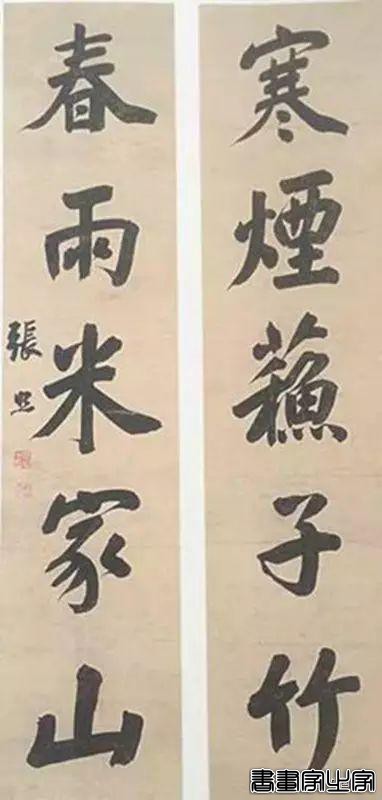 寒煙蘓子竹
春雨米家山
張照
書畫家必家